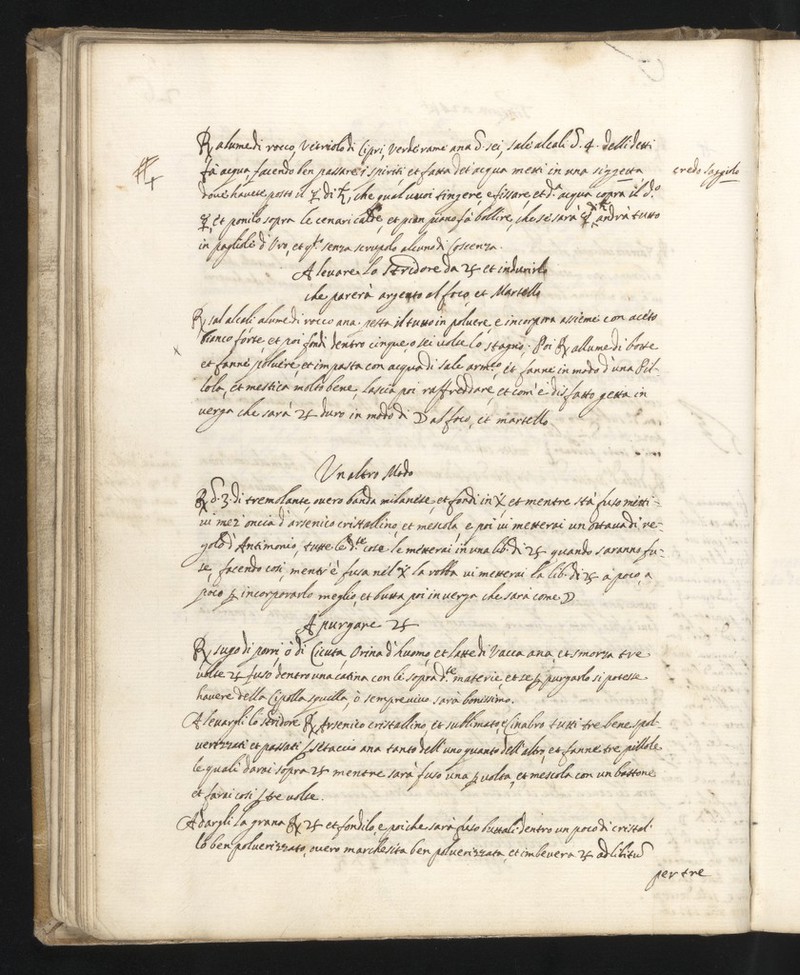 ℞ alume di rocco, Vetriolo di Cipri, Verderame ana ℥. sei, sale alcali ℥. 4. delli detti
fà acqua, facendo ben passare i spiriti et fatta det'acqua metti in una sizzetta
credo saggiolo
dove havete posto il ☿ di ♄, che qual vuoi tingere e fissare, et d.ª acqua copra il d.º
☿, et ponilo sopra le cenari calde, et pian piano fà bollire, che se sarà andrà tutto
in pagliole d'Oro, et q.ᵗᵒ senza scrupolo alcuno di Coscenza.
A levare lo Stridore da ♃ et indurirlo
che parerà argento al foco, et Martello
℞ sal alcali alume di rocco ana. pesta il tutto in polvere, e incorpora assieme con aceto
bianco forte, et poi fondi dentro cinque, o sei volte lo stagno; Poi ℞ allume di botte
et fanne polvere, et impasta con acqua di sale armco, et fanne in modo d'una Pil-
lola, et mestica molto bene, lascia poi raffreddare, et com'è disfatto getta in
verga che sarà ♃ duro in modo di ☽ al foco, et martello
Un altro Modo
℞ ℥. 3. di tremolante, overo banda milanese, et fondi in et mentre stà fuso metti-
vi mez'oncia d'arsenico cristallino, et mescola, e poi vi metterai un ottava di re-
golo d'Antimonio, tutte le d.ᵗᵉ cose le metterai in una lib. di ♃ quando saranno fu-
se, facendo così mentr'è fusa nel la robba vi metterai la lib. di ♃ à poco, a
poco ꝑ incorporarlo meglio, et butta poi in verga che sarà come ☽
A purgare ♃
℞ sugo di porri, ò di Cicuta, Orina d'huomo, et latte di Vacca ana, et smorza tre
volte ♃ fuso dentro una catina con le sopra d.ᵗᵉ materie, et se ꝑ purgarlo si potesse
havere della Cipolla squilla, ò semprevivo sarà bonissimo.
A levargli lo stridore ℞ Arsenico cristallino, et sublimato, e Cinabro tutti tre bene spol-
verizzati et passati ꝑ setaccio ana tanto dell'uno quanto dell'altro, et fanne tre pillole
le quali darai sopra ♃ mentre sarà fuso una ꝑ volta, et mescola con un bastone
et farai così ꝑ tre volte.
A dargli la grana ℞ ♃ et fondilo, e poi che sarà fuso buttali dentro un poco di cristal-
lo ben polverizzato, overo marchesita ben polverizzata, et imbevera ♃ ad libitū
per tre